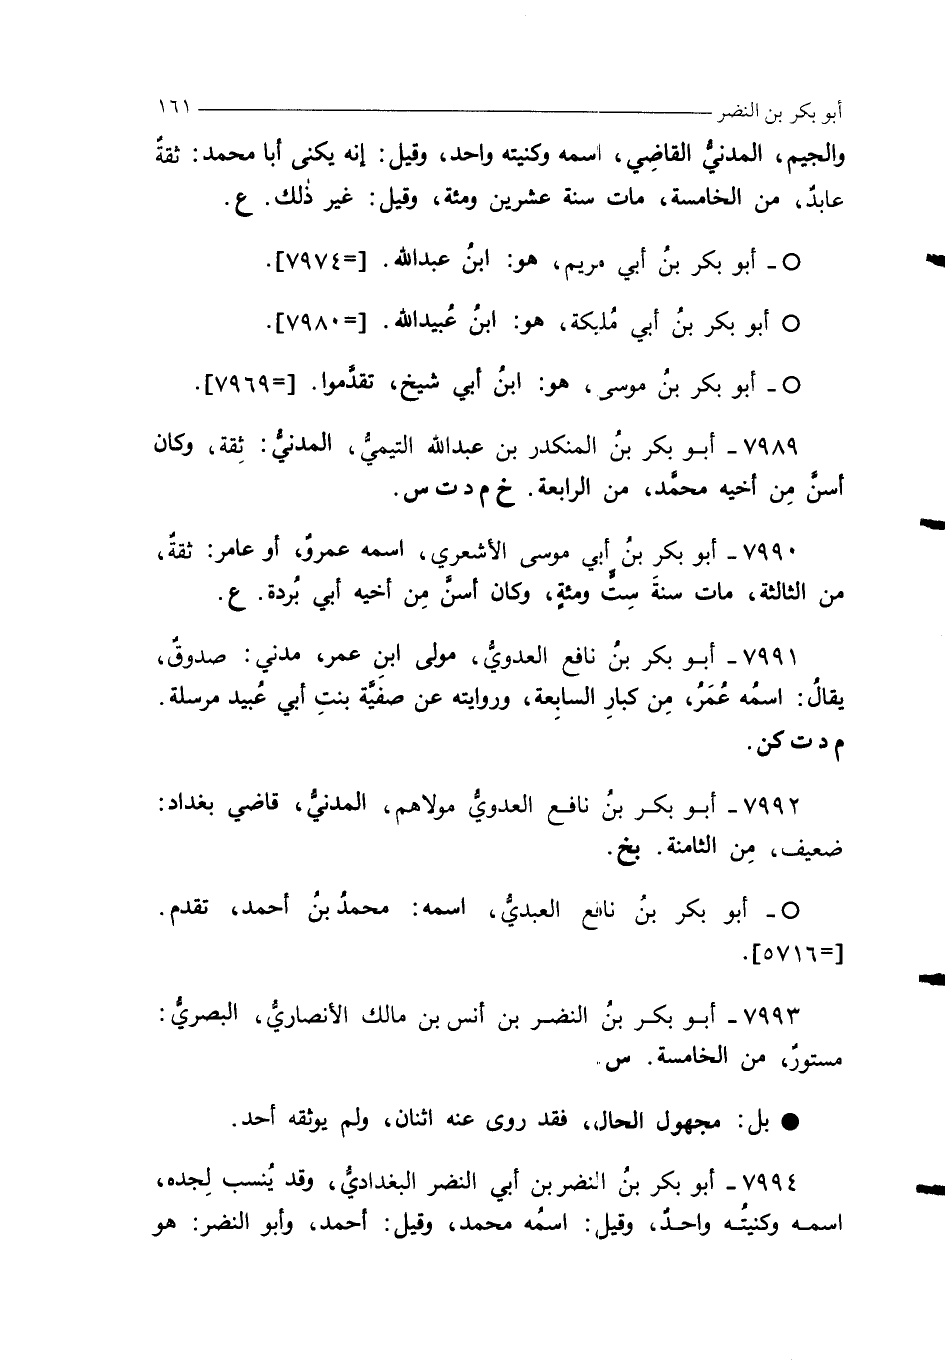 أبو بكر بن النضر ١٦١
والجيم، المدنيُّ القاضِي، اسمه وكنيته واحد، وقيل: إنه يكنى أبا محمد: ثقةٌ
عابدٌ، من الخامسة، مات سنة عشرين ومئة، وقيل: غير ذٰلك. ع.
○ ـ أبو بكر بنُ أبي مريم، هو: ابنُ عبدالله. [=٧٩٧٤].
○ أبو بكر بنُ أبي مُليكة، هو: ابنُ عُبيدالله. [=٧٩٨٠].
○ ـ أبو بكر بنُ موسى، هو: ابنُ أبي شيخ، تقدَّموا. [=٧٩٦٩].
٧٩٨٩ ـ أبـو بكر بنُ المنكدر بن عبدالله التيميُّ، المدنيُّ: ثِقة، وكان
أسنَّ مِن أخيه محمَّد، من الرابعة. خ م د ت س.
٧٩٩٠ ـ أبو بكر بنُ أبي موسى الأشعري، اسمه عمروٌ، أو عامر: ثقةٌ،
من الثالثة، مات سنةَ سِتٍّ ومئةٍ، وكان أسنَّ مِن أخيه أبي بُردة. ع.
٧٩٩١ ـ أبـو بكر بنُ نافع العدويُّ، مولى ابنِ عمر، مدني: صدوقٌ،
يقالُ: اسمُه عُمَرُ، مِن كبارِ السابِعة، وروايته عن صفيَّة بنتِ أبي عُبيد مرسلة.
م د ت كن.
٧٩٩٢ ـ أبـو بكـر بنُ نافـع العدويُّ مولاهم، المدنيُّ، قاضي بغداد:
ضعيف، مِن الثامنة. بخ.
○ ـ أبو بكر بنُ نافع العبديُّ، اسمه: محمدُ بنُ أحمد، تقدم.
[=٥٧١٦].
٧٩٩٣ ـ أبـو بكـر بنُ النضـر بن أنس بن مالك الأنصاريُّ، البصريُّ:
مستورٌ، من الخامسة. س.
● بل: مجهول الحال، فقد روى عنه اثنان، ولم يوثقه أحد.
٧٩٩٤ ـ أبو بكر بنُ النضر بن أبي النضر البغداديُّ، وقد يُنسب لِجده،
اسمـه وكنيتُـه واحـدٌ، وقيل: اسمُه محمد، وقيل: أحمد، وأبو النضر: هو